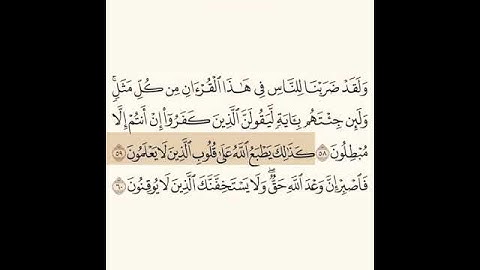 وَلَقَدْ ضَرَبْنَا لِلنَّاسِ فِي هَٰذَا ٱلْقُرْءَانِ مِن كُلِّ مَثَلٍۚ
وَلَئِن جِئْتَهُم بِـَٔايَةٖ لَّيَقُولَنَّ ٱلَّذِينَ كَفَرُوٓاْ إِنْ أَنتُمْ إِلَّا
مُبْطِلُونَ ٥٨ كَذَٰلِكَ يَطْبَعُ ٱللَّهُ عَلَىٰ قُلُوبِ ٱلَّذِينَ لَا يَعْلَمُونَ ٥٩
فَٱصْبِرْ إِنَّ وَعْدَ ٱللَّهِ حَقّٞۖ وَلَا يَسْتَخِفَّنَّكَ ٱلَّذِينَ لَا يُوقِنُونَ ٦٠